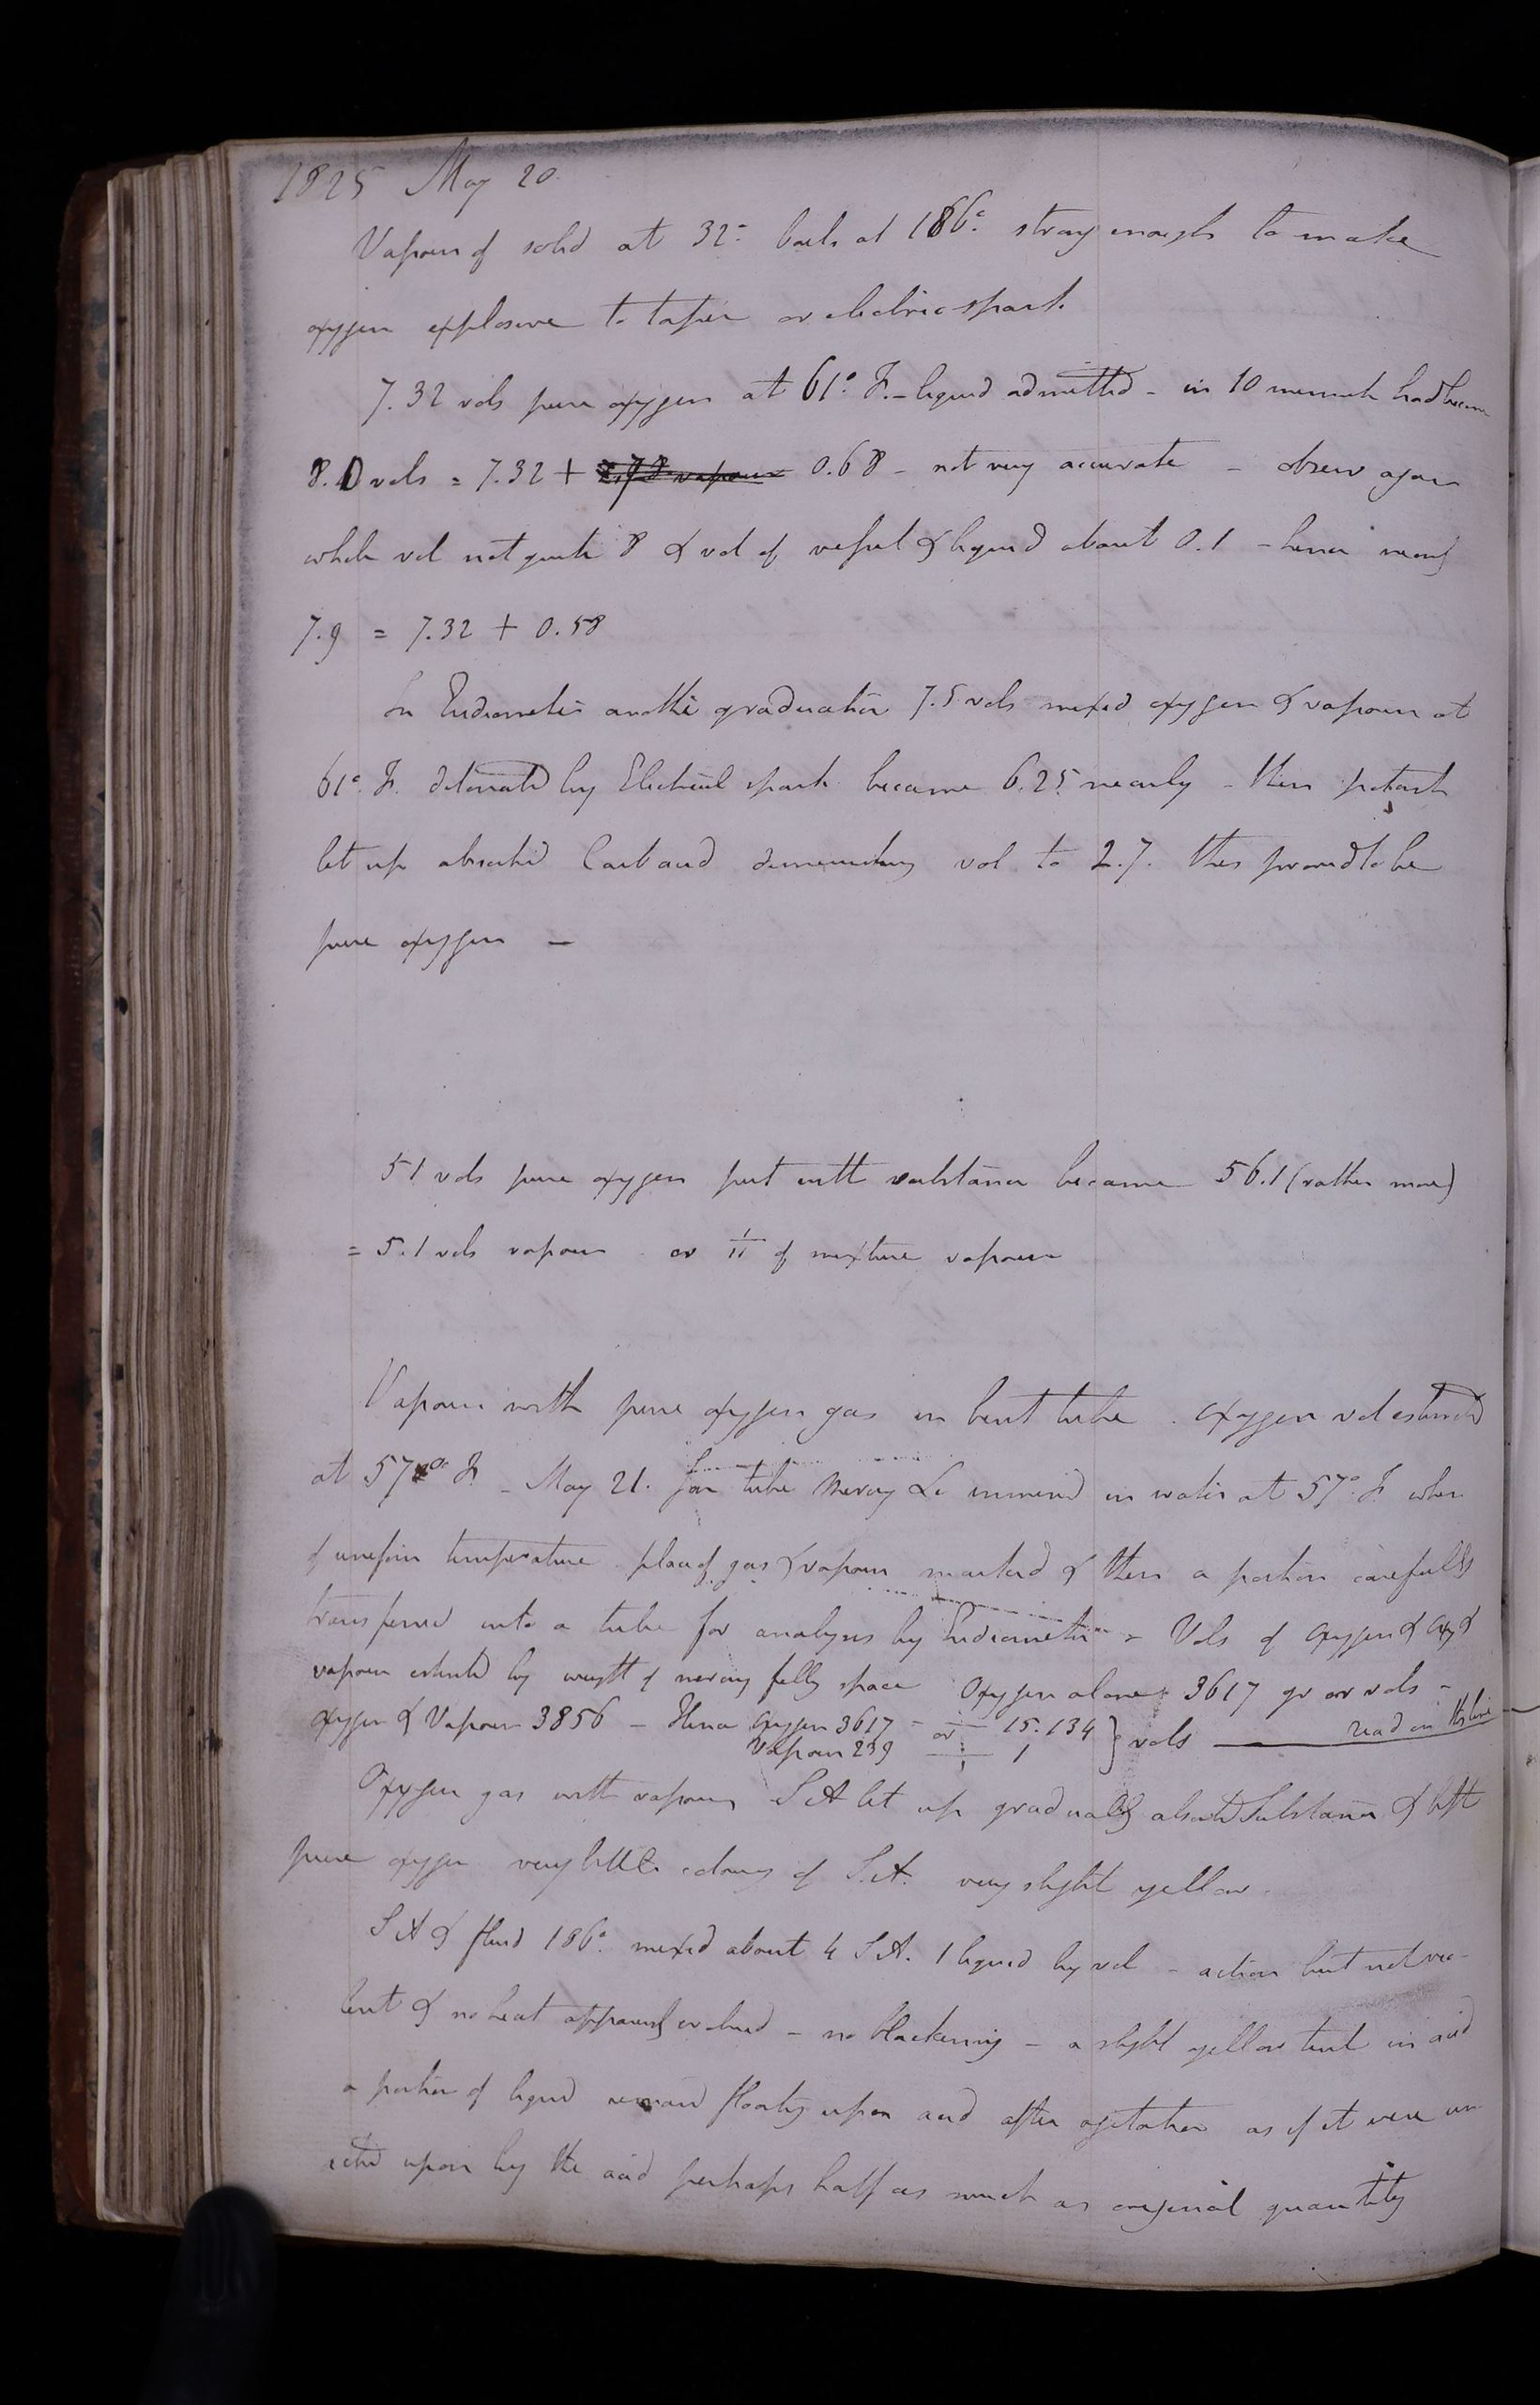 1825 May 20
Vapour of solid at 32° boils at 186° strong enough to make
oxygen explosive to taper or electric spark
7.32 vols pure oxygen at 61° F. - liquid admitted - in 10 minutes had become
8.0 vols = 7.32 + 0.68 - not very accurate - drew again
whole vol not quite 8 & vol of & liquid about 0.1 - hence nearly
7.9 = 7.32 + 0.58
In Eudiometer another graduation 7.5 vols mixed oxygen & vapour at
61° F. detonated by Electrical spark became 6.25 nearly - then potash
let up absorbed Carb acid diminishing vol to 2.7. this proved to be
pure oxygen -
51 vols pure oxygen put with substance became 56.1 (rather more)
= 5.1 vols vapour or 1/11 of mixture vapour
Vapour with pure oxygen gas in bent tube. Oxygen vol estimated
at 57° F. - May 21. Jar tube Mercury &c immersed in water at 57° F. when
of uniform temperature place of gas & vapour marked & then a portion carefully
transferred into a tube for analysis by Eudiometer - Vols of Oxygen & Oxy &
vapour estimated by weight of mercury filling space Oxygen alone = 3617 gr or vols -
Oxygen & Vapour 3856 - Hence Oxygen 3617 - or - 15.134 } vols read on this line
Vapour 239 1
Oxygen gas with vapour S A let up gradually absorbed Substance & left
pure oxygen very little colouring of S.A. very slight yellow.
S A & fluid 186° mixed about 4 S A. 1 liquid by vol - action but not vio-
lent & no heat apparently evolved - no blackening - a slight yellow tint in acid
a portion of liquid remained floating upon acid after agitation as if it were un
acted upon by the acid perhaps half as much as original quantity